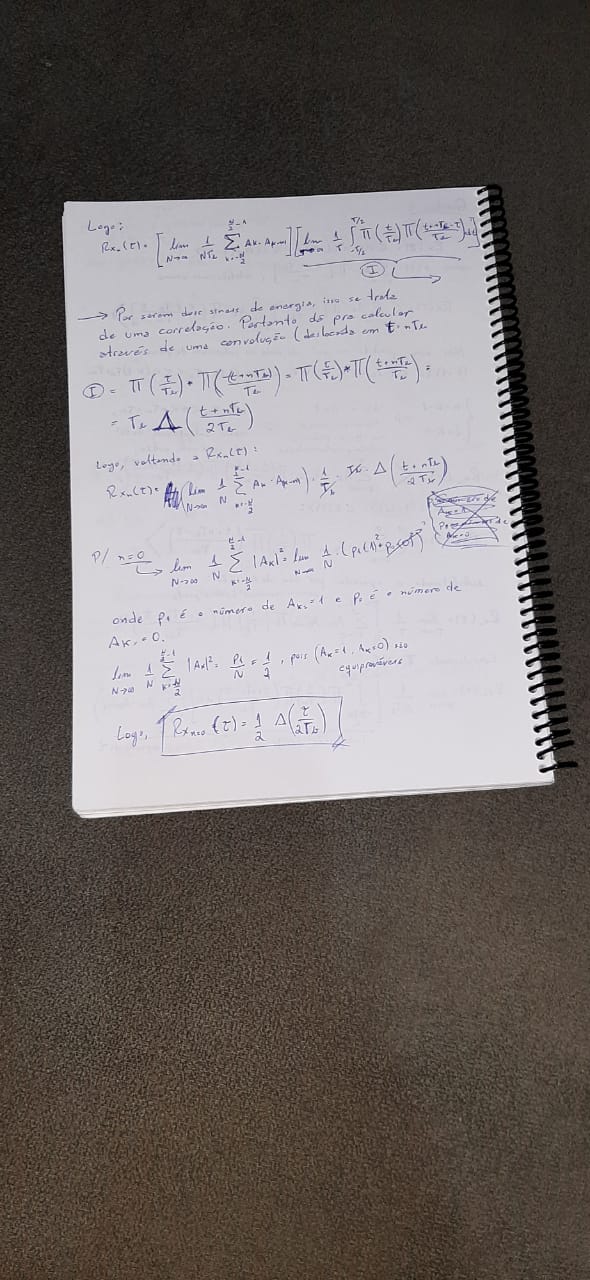 Logo:
Rxₙ(τ) = [lim N→∞ 1/NTb ∑ k=-N/2 ^ N/2-1 Ak · Ak-n] [lim T→∞ 1/T ∫ -T/2 ^ T/2 Π(t/Tb) Π((t+nTb-τ)/Tb) dt]
I
→ Por serem dois sinais de energia, isso se trata
de uma correlação. Portanto dá pra calcular
através de uma convolução (deslocada em t=nTb
I = Π(τ/Tb) * Π(-(t+nTb)/Tb) = Π(τ/Tb) * Π((t+nTb)/Tb) =
= Tb Δ((t+nTb)/2Tb)
Logo, voltando a Rxₙ(τ):
Rxₙ(τ) = (lim N→∞ 1/N ∑ k=-N/2 ^ N/2-1 Ak · Ak-n) · 1/Tb · Tb · Δ((t+nTb)/2Tb)
Ak=1
Ak=0
P/ n=0 → lim N→∞ 1/N ∑ k=-N/2 ^ N/2-1 |Ak|² = lim N→∞ 1/N · (p₁(1)² + p₀(0)²)
onde p₁ é o número de Ak=1 e p₀ é o número de
Ak=0.
lim N→∞ 1/N ∑ k=-N/2 ^ N/2-1 |Ak|² = p₁/N = 1/2, pois (Ak=1, Ak=0) são
equiprováveis
Logo, Rxₙ₌₀(τ) = 1/2 Δ(τ/2Tb)